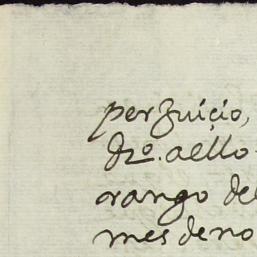 perzuicio,
dro. aello
orango del
mes de no